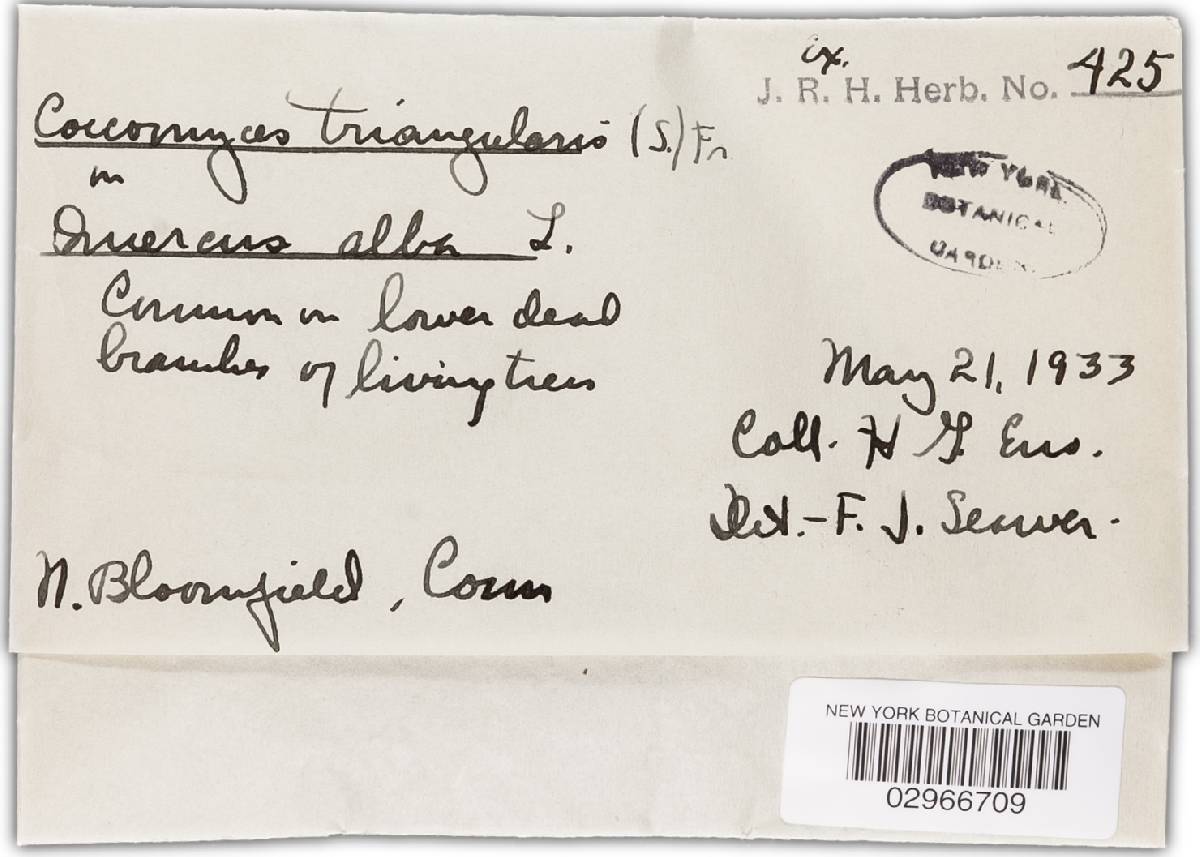 ex.
J. R. H. Herb. No. 425
Coccomyces triangularis (S.) Fr
on
Quercus alba L.
NEW YORK
BOTANICAL
GARDEN
Common on lower dead
branches of living trees
May 21, 1933
Coll. H G. Eno.
Det. - F. J. Seaver.
N. Bloomfield, Conn
NEW YORK BOTANICAL GARDEN
02966709